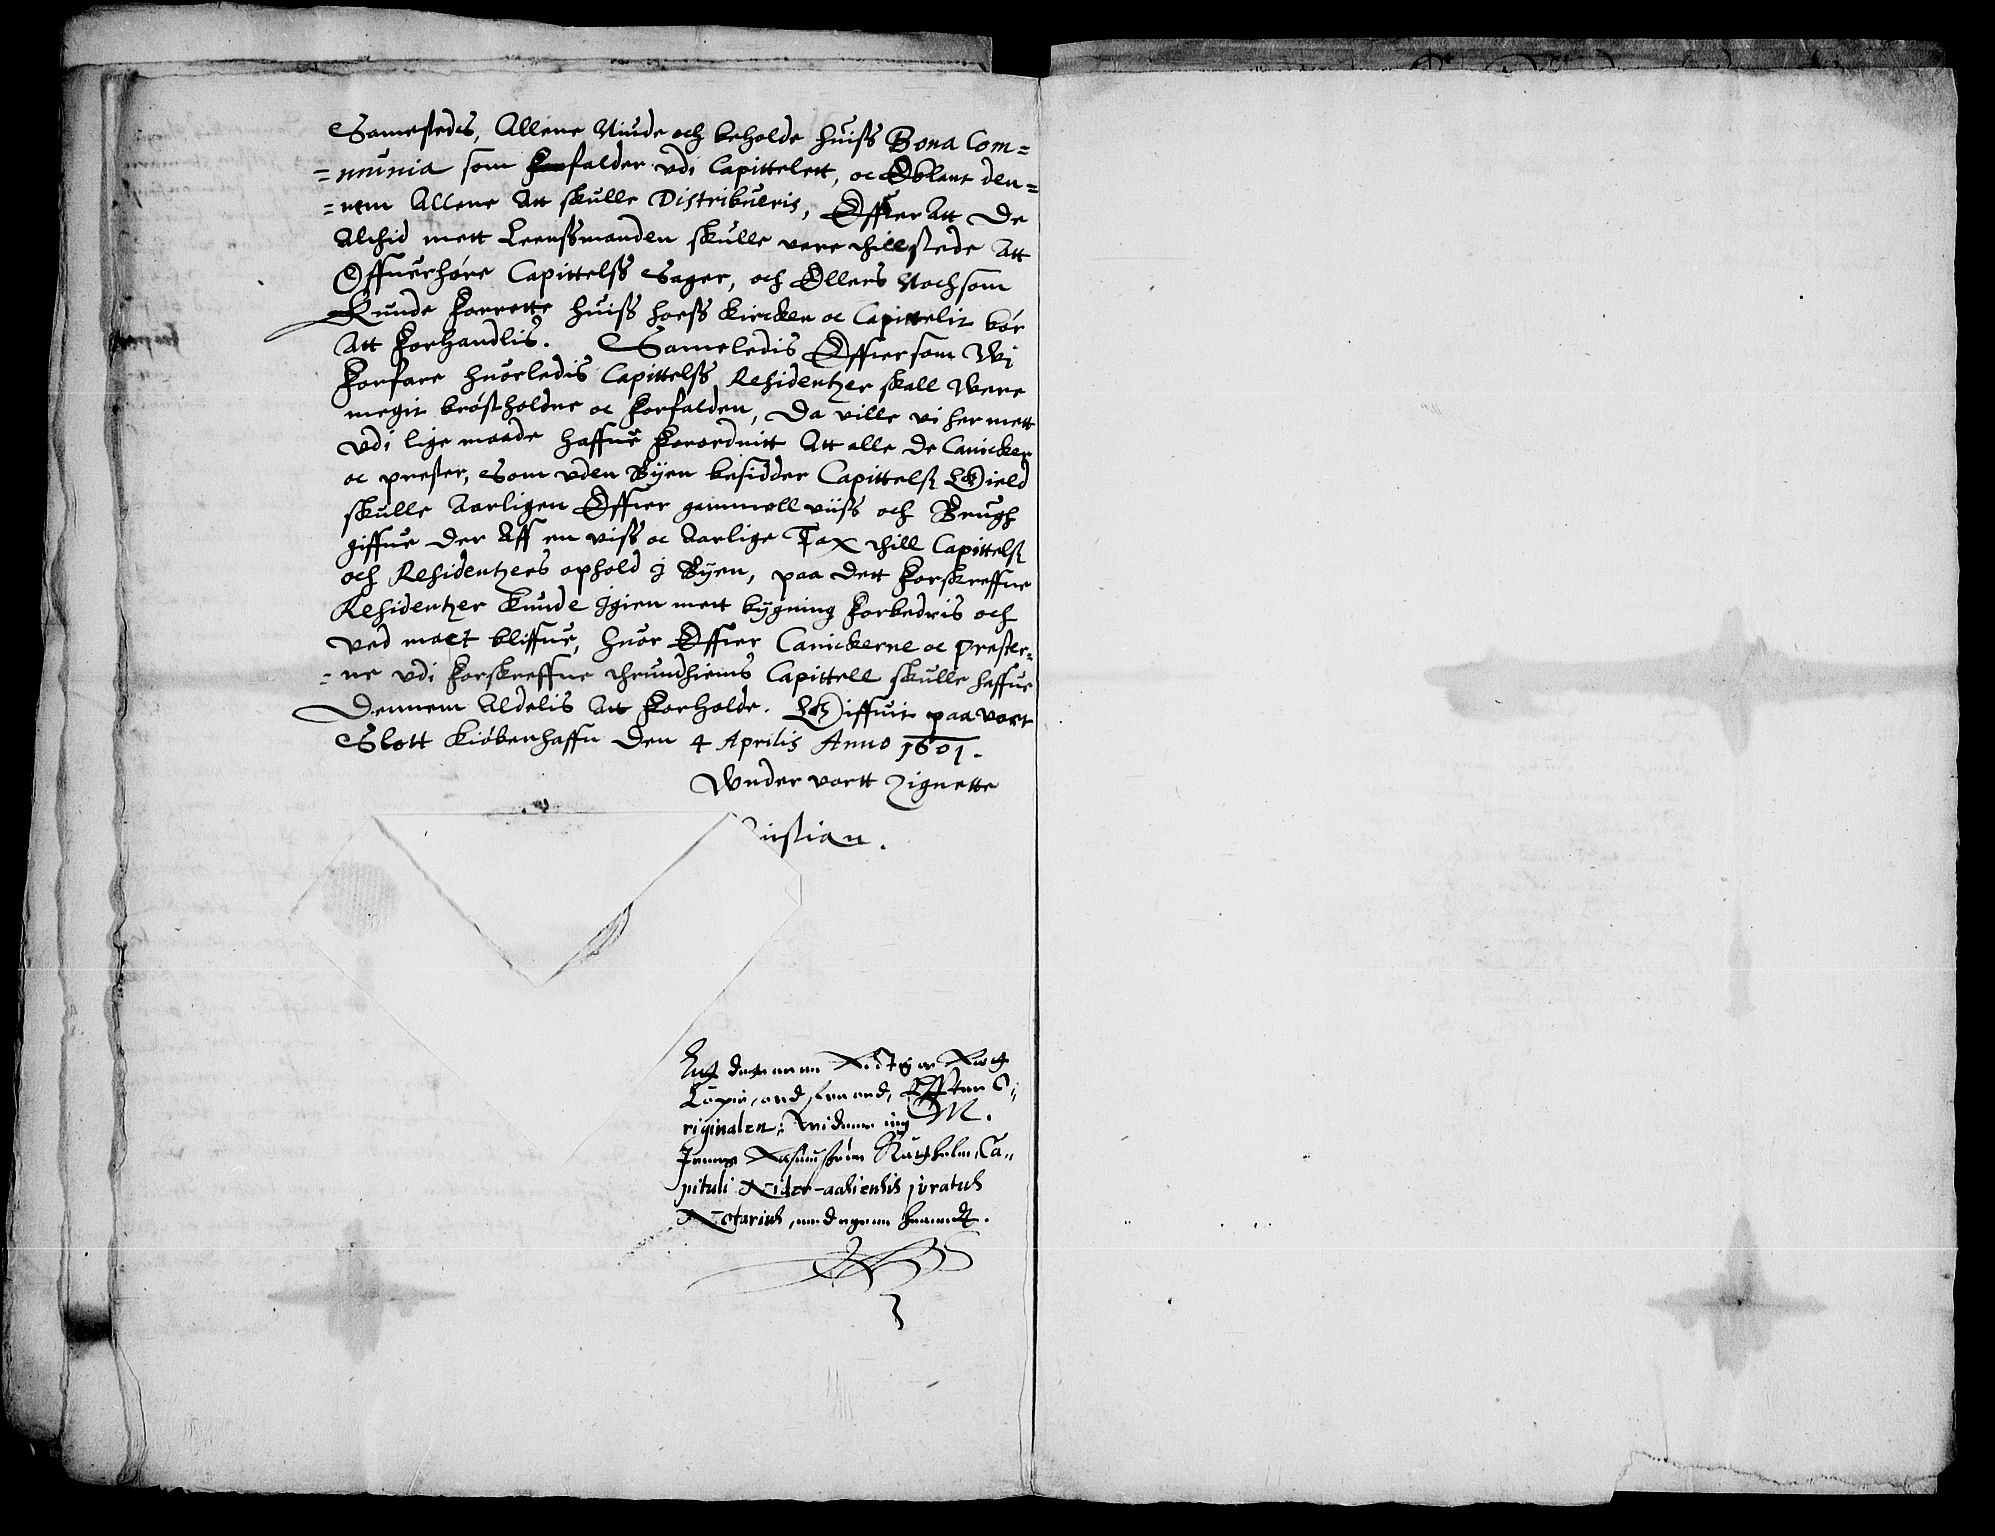 Samesteds, Allene Niude och beholde huiss Bona Com=
=munia som falder vdi Capittelett, oc Iblant den=
=nem Allene Att skulle Distribueris, Effter Att De
Altid mett Leenssmanden skulle vere thill stede Att
Offuerhøre Capittelss Sager, och Ellers Noch som
Kunde forrette huiss hoess Kircken oc Capittelit bør
Att forhandlis. Sameledis Effter som Wi
forfare huorledis Capittelss Residentzer skall Were
megit brøstholdne oc forfalden, Da ville vi her mett
vdi lige maade haffue forordnitt Att alle de Canicker
oc prester, som vden Byen besidder Capittelss Gield
skulle Aarligen Effter gammell viiss och Brugh
giffue der Aff en viss oc Aarlige Tax thill Capittelss
och Residentzers ophold i Byen, paa dett forskreffne
Residentzer kunde Igien mett bygning forbedris och
ved mact bliffue, huor Effter Canickerne oc prester=
=ne vdi forskreffne thrundhiems Capittell skulle haffue
Dennem Aldelis Att forholde. Giffuit paa vort
Slott Kiøbenhaffn Den 4 Aprilis Anno 1601.
Wnder vortt Zignette
istian.
Att denne er en Rictig oc
Copie, ord fra ord, Effter O=
riginalen; vidner ieg M.
Jenns Capituli Nidrosiensis juratus
Notarius, med egen haandt.